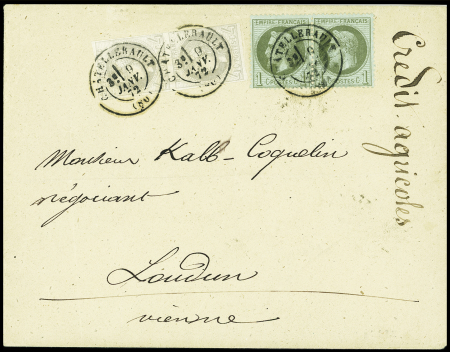 CHATELLERAULT
3E
9
JANV.
72
(80)
CHATELLERAULT
3E
9
JANV.
72
(80)
EMPIRE FRANÇAIS EMPIRE FRANÇAIS
CHATELLERAULT
9
72
1 POSTES C. 1
Crédit. agricoles
Monsieur Kalb-Coquelin
négociant
Loudun
vienne